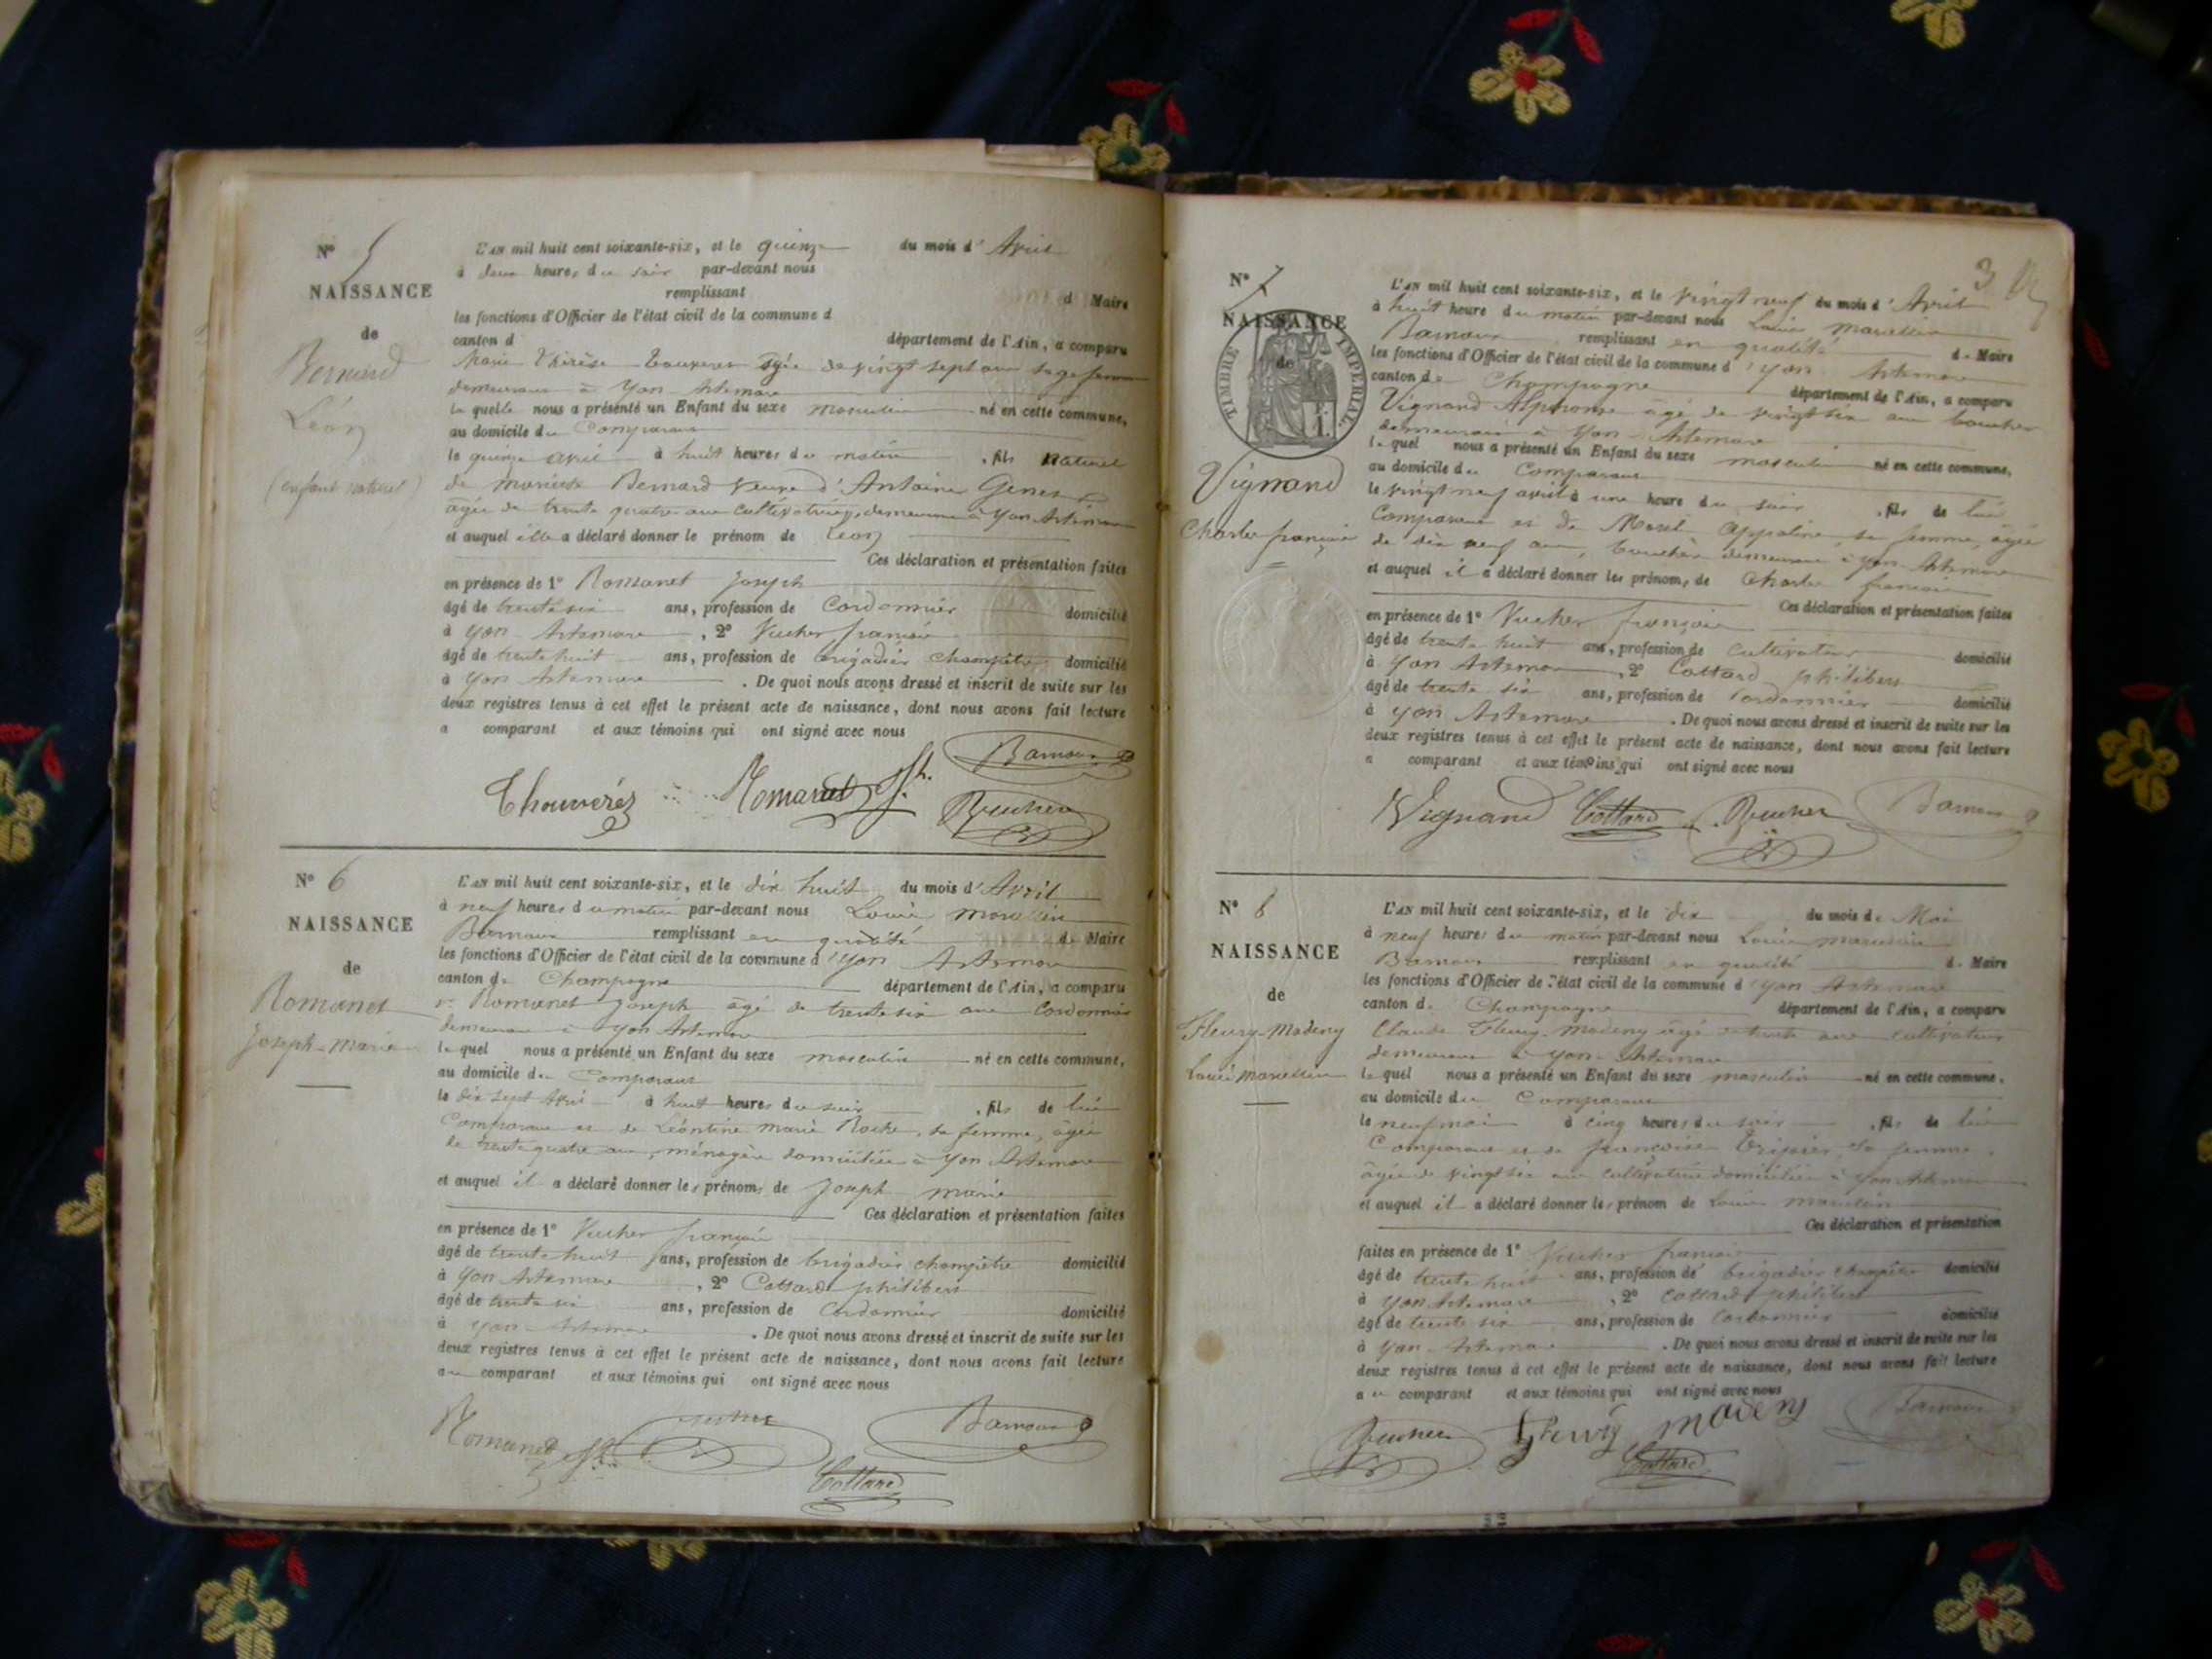 N° 5
NAISSANCE
de
Bernard
Léon
(enfant naturel)
L'AN mil huit cent soixante-six, et le quinze du mois d' Avril
à deux heures du soir par-devant nous
remplissant d Maire
les fonctions d'Officier de l'état civil de la commune d
canton d département de l'Ain, a comparu
Marie Thérèse âgée de vingt sept ans sage femme
demeurant à Yon Artemare
la quelle nous a présenté un Enfant du sexe masculin né en cette commune,
au domicile du Comparant
le quinze avril à huit heures du matin, fils naturel
de Bernard veuve d'Antoine
âgée de trente quatre ans cultivatrice, demeurant à Yon Artemare
et auquel elle a déclaré donner le prénom de Léon
Ces déclaration et présentation faites
en présence de 1° Romanet Joseph
âgé de trente six ans, profession de Cordonnier domicilié
à Yon Artemare, 2° Vucher françois
âgé de trente huit ans, profession de brigadier champêtre domicilié
à Yon Artemare. De quoi nous avons dressé et inscrit de suite sur les
deux registres tenus à cet effet le présent acte de naissance, dont nous avons fait lecture
a comparant et aux témoins qui ont signé avec nous
Romanet Jph.
Vucher
N° 6
NAISSANCE
de
Romanet
Joseph-Marie
L'AN mil huit cent soixante-six, et le dix huit du mois d' Avril
à neuf heures du matin par-devant nous Louis Marcellin
remplissant en qualité de Maire
les fonctions d'Officier de l'état civil de la commune d'Yon Artemare
canton de Champagne département de l'Ain, a comparu
Romanet Joseph âgé de trente six ans Cordonnier
demeurant à Yon Artemare
le quel nous a présenté un Enfant du sexe masculin né en cette commune,
au domicile du Comparant
le dix sept Avril à huit heures du soir, fils de lui
Comparant et de Léontine Marie Roche, sa femme, âgée
de trente quatre ans, ménagère domiciliée à Yon Artemare
et auquel il a déclaré donner les prénoms de Joseph Marie
Ces déclaration et présentation faites
en présence de 1° Vucher françois
âgé de trente huit ans, profession de brigadier champêtre domicilié
à Yon Artemare, 2° Cottard philibert
âgé de trente six ans, profession de Cordonnier domicilié
à Yon Artemare. De quoi nous avons dressé et inscrit de suite sur les
deux registres tenus à cet effet le présent acte de naissance, dont nous avons fait lecture
au comparant et aux témoins qui ont signé avec nous
Romanet Jph
Cottard
3
N° 7
NAISSANCE
de
TIMBRE IMPÉRIAL
Vignand
Charles françois
L'AN mil huit cent soixante-six, et le vingt neuf du mois d' Avril
à huit heure du matin par-devant nous Louis Marcellin
remplissant en qualité de Maire
les fonctions d'Officier de l'état civil de la commune d'Yon Artemare
canton de Champagne département de l'Ain, a comparu
Vignand Alphonse âgé de vingt six ans boucher
demeurant à Yon Artemare
le quel nous a présenté un Enfant du sexe masculin né en cette commune,
au domicile du Comparant
le vingt neuf avril à une heure du soir, fils de lui
Comparant et de Morel Appoline, sa femme, âgée
de dix neuf ans, bouchère demeurant à Yon Artemare
et auquel il a déclaré donner les prénoms de Charles françois
Ces déclaration et présentation faites
en présence de 1° Vucher françois
âgé de trente huit ans, profession de cultivateur domicilié
à Yon Artemare, 2° Cottard philibert
âgé de trente six ans, profession de cordonnier domicilié
à Yon Artemare. De quoi nous avons dressé et inscrit de suite sur les
deux registres tenus à cet effet le présent acte de naissance, dont nous avons fait lecture
a comparant et aux témoins qui ont signé avec nous
Vignand Cottard Vucher
N° 8
NAISSANCE
de
Fleury-Madeny
Louis Marcellin
L'AN mil huit cent soixante-six, et le dix du mois de Mai
à neuf heures du matin par-devant nous Louis Marcellin
remplissant en qualité de Maire
les fonctions d'Officier de l'état civil de la commune d'Yon Artemare
canton de Champagne département de l'Ain, a comparu
Claude Fleury-Madeny âgé de trente ans cultivateur
demeurant à Yon Artemare
le quel nous a présenté un Enfant du sexe masculin né en cette commune,
au domicile du Comparant
le neuf mai à cinq heures du soir, fils de lui
Comparant et de françoise sa femme,
âgée de vingt six ans cultivatrice domiciliée à Yon Artemare
et auquel il a déclaré donner les prénom de Louis Marcellin
Ces déclaration et présentation
faites en présence de 1° Vucher françois
âgé de trente huit ans, profession de brigadier champêtre domicilié
à Yon Artemare, 2° Cottard philibert
âgé de trente six ans, profession de Cordonnier domicilié
à Yon Artemare. De quoi nous avons dressé et inscrit de suite sur les
deux registres tenus à cet effet le présent acte de naissance, dont nous avons fait lecture
au comparant et aux témoins qui ont signé avec nous
Vucher Fleury Madeny
Cottard